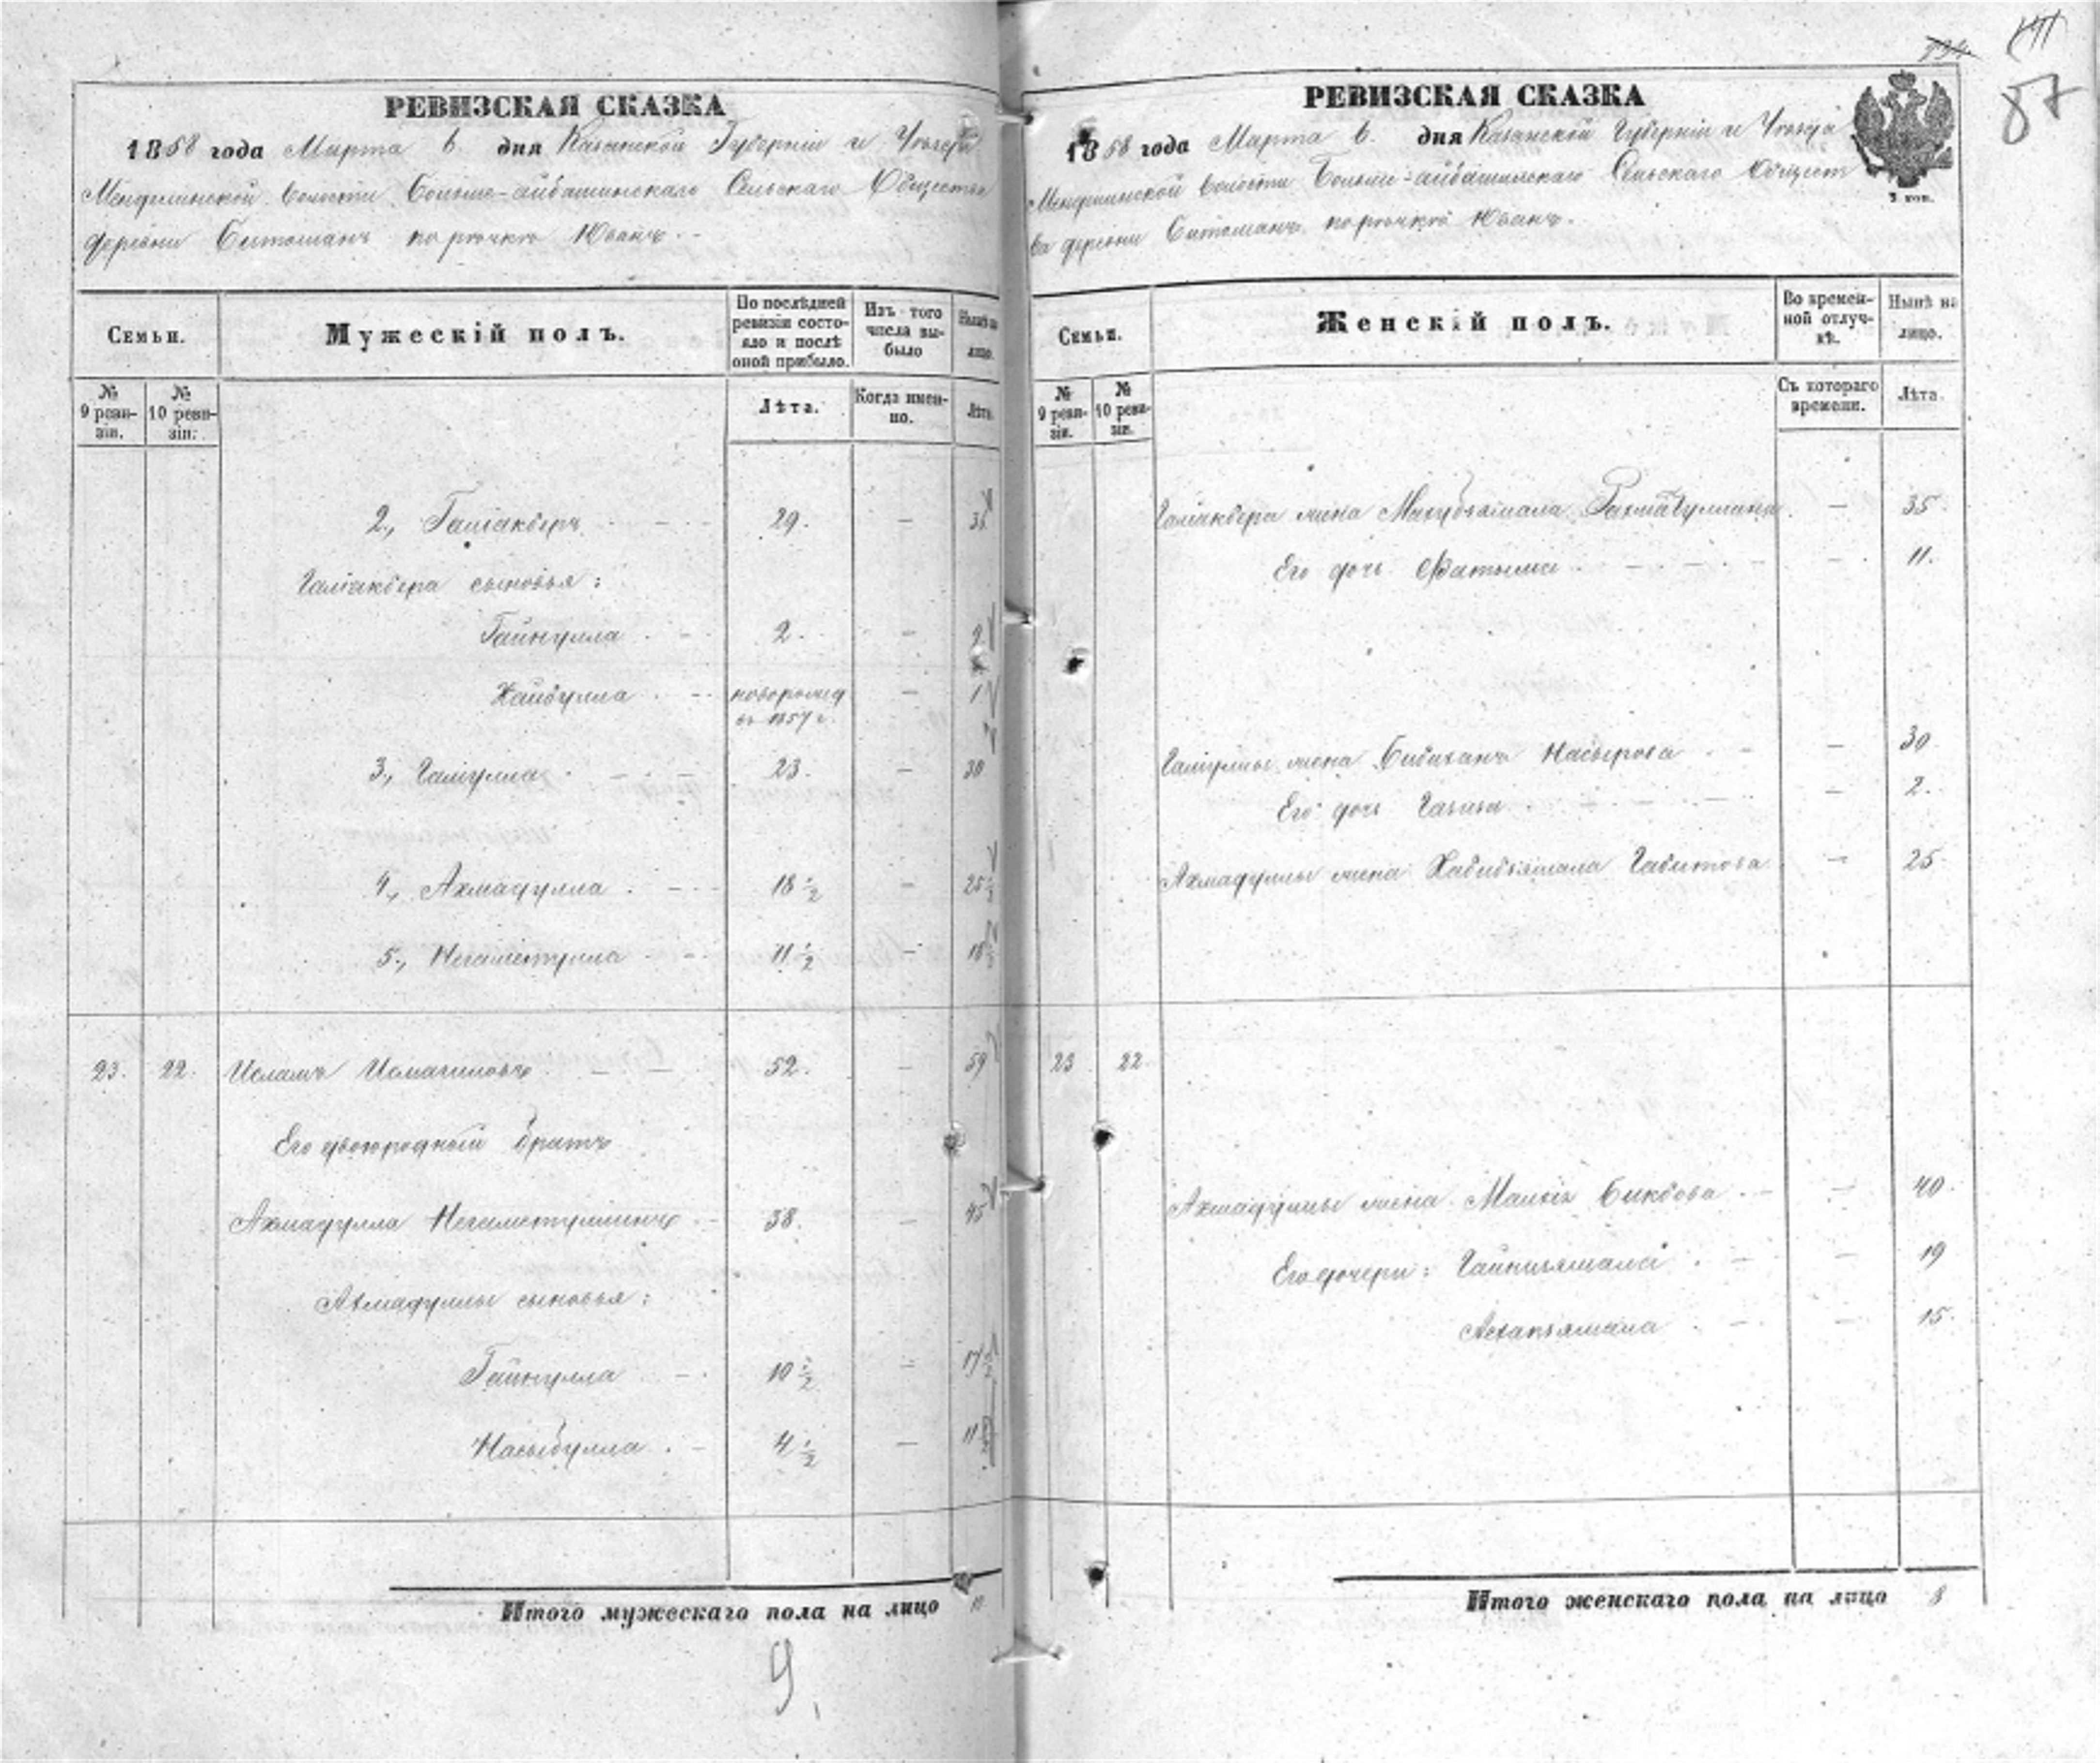 РЕВИЗСКАЯ СКАЗКА
1858 года Марта 6. дня Казанской Губерніи и Уѣзда
Менделинской волости Больше-айбашинскаго Сельскаго Общества
деревни Битоманъ по рѣчкѣ Юванъ.
Семьи.
Мужескій полъ.
По послѣдней ревизіи состояло и послѣ оной прибыло.
Изъ того числа выбыло
Нынѣ на лицо.
№ 9 ревизіи.
№ 10 ревизіи.
Лѣта.
Когда именно.
Лѣта.
2., Галіакберъ 29. — 36
Галіакбера сыновья:
Гайнулла 2. — 9.
Хайбулла новорожд — 1
въ 1857 г.
3., Галіулла 23. — 30
4., Ахмадулла 18 1/2 — 25 1/2
5., Негаметулла 11 1/2 — 18 1/2
23. 22. Исламъ Исмагиловъ 52. — 59
Его двоюродный братъ
Ахмадулла Негаметуллинъ 38. — 45
Ахмадуллы сыновья:
Гайнулла 10 1/2 — 17 1/2
Насыбулла 4 1/2 — 11 1/2
Итого мужескаго пола на лицо 10
9,
87
РЕВИЗСКАЯ СКАЗКА
1858 года Марта 6. дня Казанской Губерніи и Уѣзда
Менделинской волости Больше-айбашинскаго Сельскаго Общест
ва деревни Битоманъ по рѣчкѣ Юванъ.
3 коп.
Семьи.
Женскій полъ.
Во временной отлучкѣ.
Нынѣ на лицо.
№ 9 ревизіи.
№ 10 ревизіи.
Съ котораго времени.
Лѣта.
Галіакбера жена — 35
Его дочь Фатыма — 11.
Галіуллы жена Бибиханъ Насырова — 30
Его дочь — 2.
Ахмадуллы жена Хабибъямала Габитова — 25
23 22
Ахмадуллы жена Малкія Бикбова — 40.
Его дочери: Гайниямала — 19
— 15.
Итого женскаго пола на лицо 8